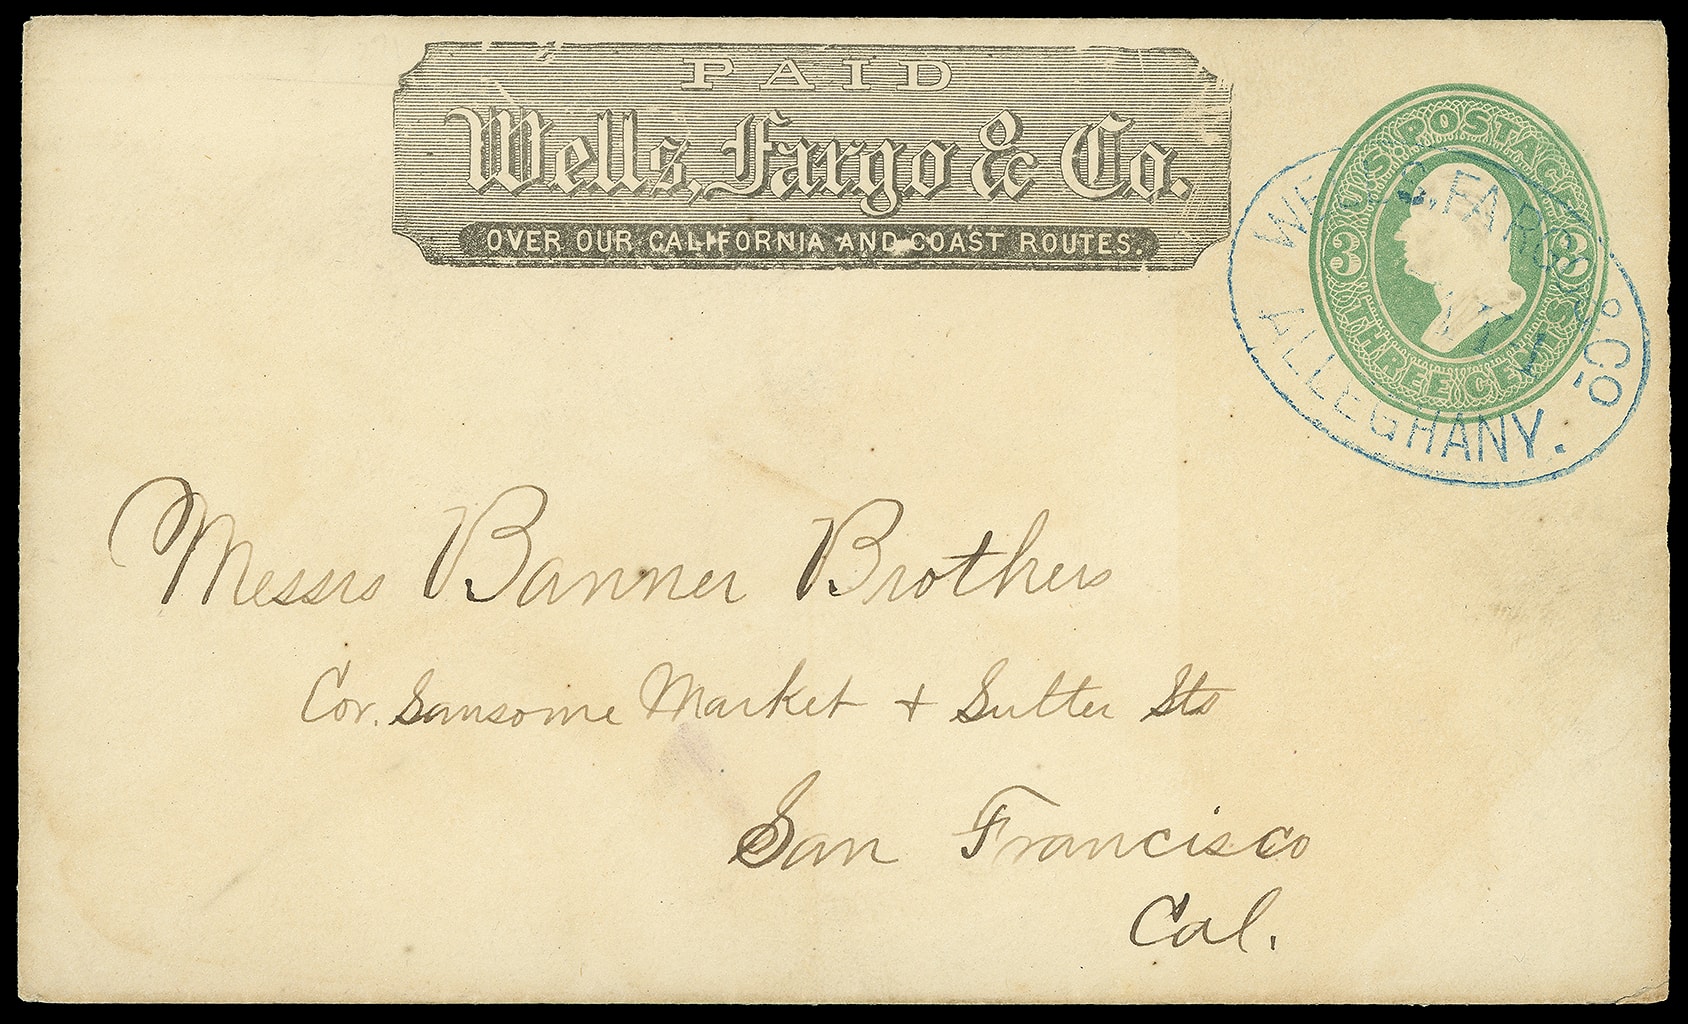 PAID
Wells, Fargo & Co.
OVER OUR CALIFORNIA AND COAST ROUTES.
U.S. POSTAGE
3 3
THREE CENTS
WELLS, FARGO & CO.
ALLEGHANY.
Messrs Banner Brothers
Cor. Sansome Market + Sutter Sts
San Francisco
Cal.